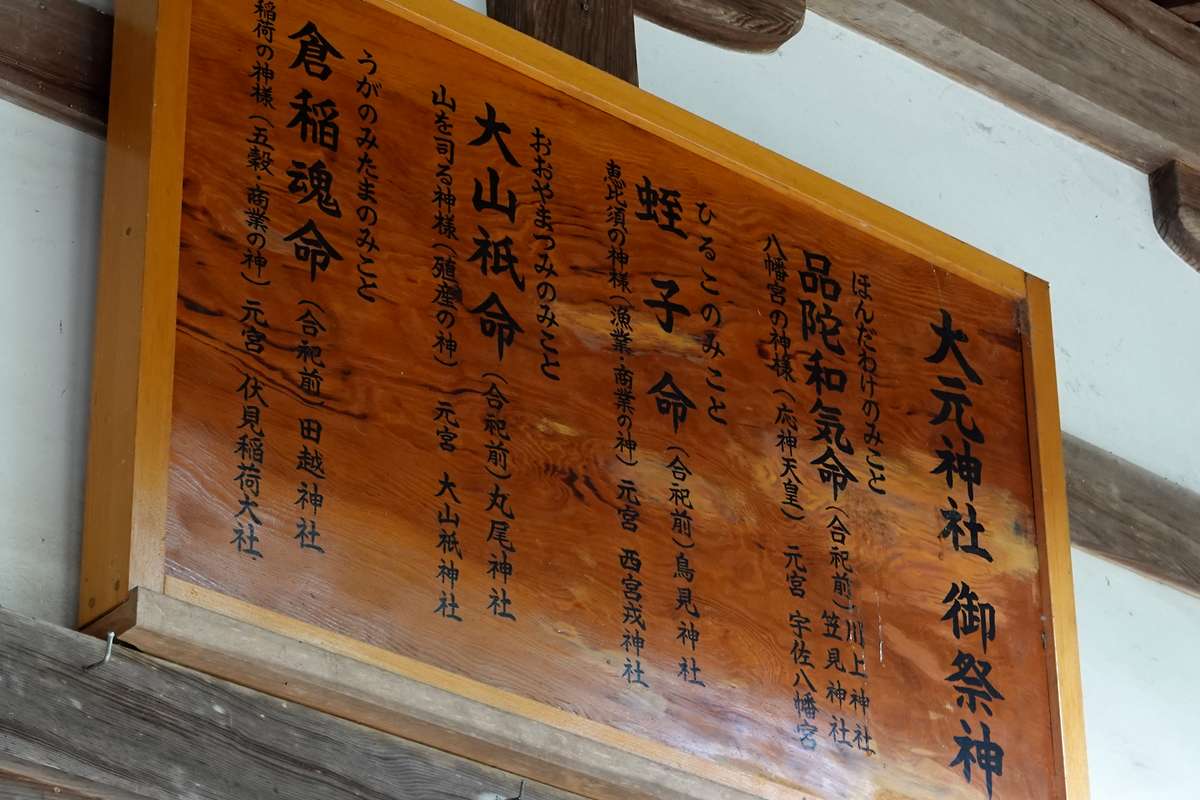 大元神社 御祭神
ほんだわけのみこと
品陀和気命(合祀前)川上神社 笠見神社
八幡宮の神様(応神天皇) 元宮 宇佐八幡宮
ひるこのみこと
蛭子命(合祀前)鳥見神社
恵比須の神様(漁業・商業の神)元宮 西宮戎神社
おおやまつみのみこと
大山祇命(合祀前)丸尾神社
山を司る神様(殖産の神) 元宮 大山祇神社
うがのみたまのみこと
倉稲魂命(合祀前)田越神社
稲荷の神様(五穀・商業の神)元宮 伏見稲荷大社